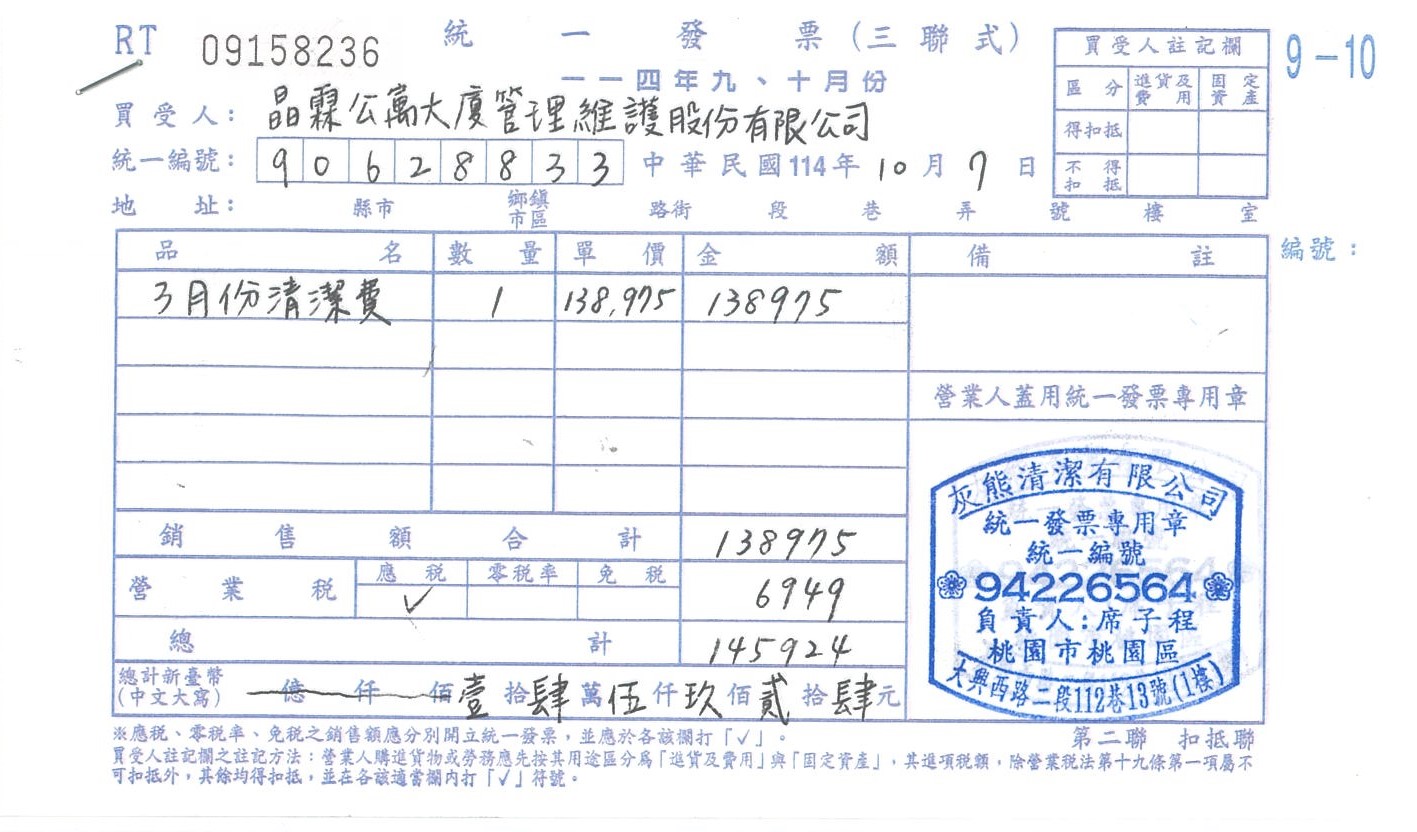 RT 09158236 統一發票(三聯式) 9-10
一一四年九、十月份
買受人註記欄
區分 進貨及費用 固定資產
得扣抵
不得扣抵
買受人: 晶霖公寓大廈管理維護股份有限公司
統一編號: 90628833 中華民國114年10月7日
地址: 縣市 鄉鎮市區 路街 段 巷 弄 號 樓 室
品名 數量 單價 金額 備註 編號:
3月份清潔費 1 138,975 138975
營業人蓋用統一發票專用章
銷售額合計 138975
營業稅 應稅 零稅率 免稅 6949
✓
總計 145924
總計新臺幣(中文大寫) 億 仟 佰壹拾肆萬伍仟玖佰貳拾肆元
灰熊清潔有限公司
統一發票專用章
統一編號
94226564
負責人:席子程
桃園市桃園區
大興西路二段112巷13號(1樓)
※應稅、零稅率、免稅之銷售額應分別開立統一發票,並應於各該欄打「✓」。
第二聯 扣抵聯
買受人註記欄之註記方法:營業人購進貨物或勞務應先按其用途區分為「進貨及費用」與「固定資產」,其進項稅額,除營業稅法第十九條第一項屬不
可扣抵外,其餘均得扣抵,並在各該適當欄內打「✓」符號。